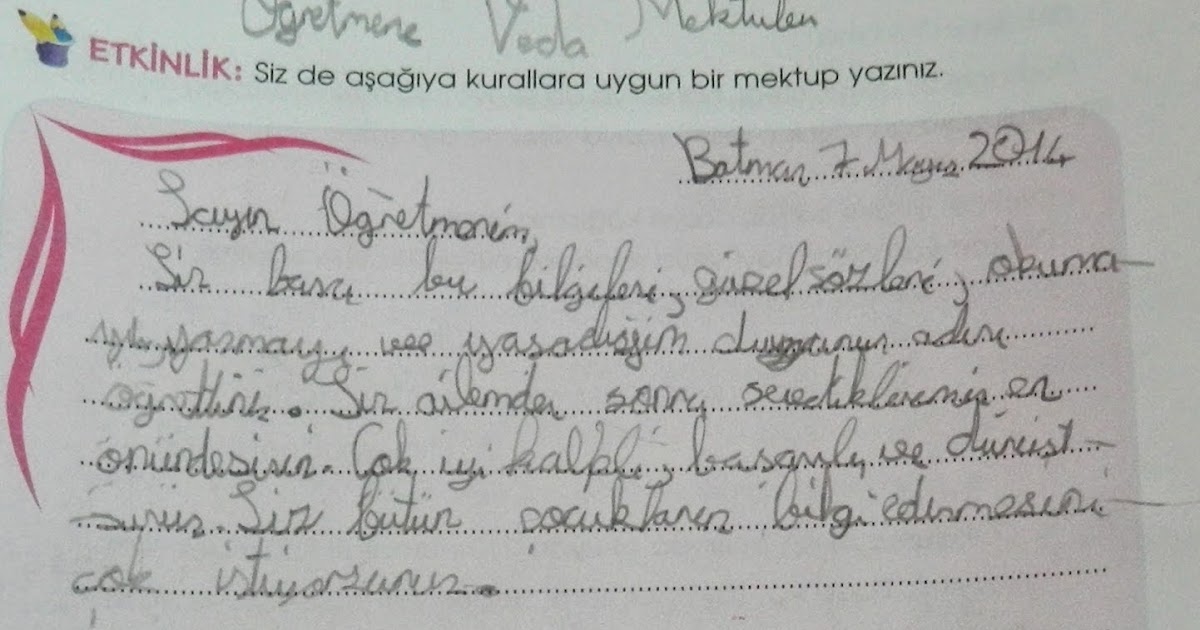 Öğretmene Veda Mektubu
ETKİNLİK: Siz de aşağıya kurallara uygun bir mektup yazınız.
Batman 7 Mayıs 2014
Sayın Öğretmenim,
Siz bana bu bilgileri, güzel sözleri, okuma-
yı, yazmayı, ve yaşadığım dünyanın adını
öğrettiniz. Siz ailemden sonra sevdiklerimin en
önündesisin. Çok iyi kalpli, başarılı, ve dürüst-
sünüz. Siz bütün çocukların bilgi edinmesini
çok istiyorsunuz.